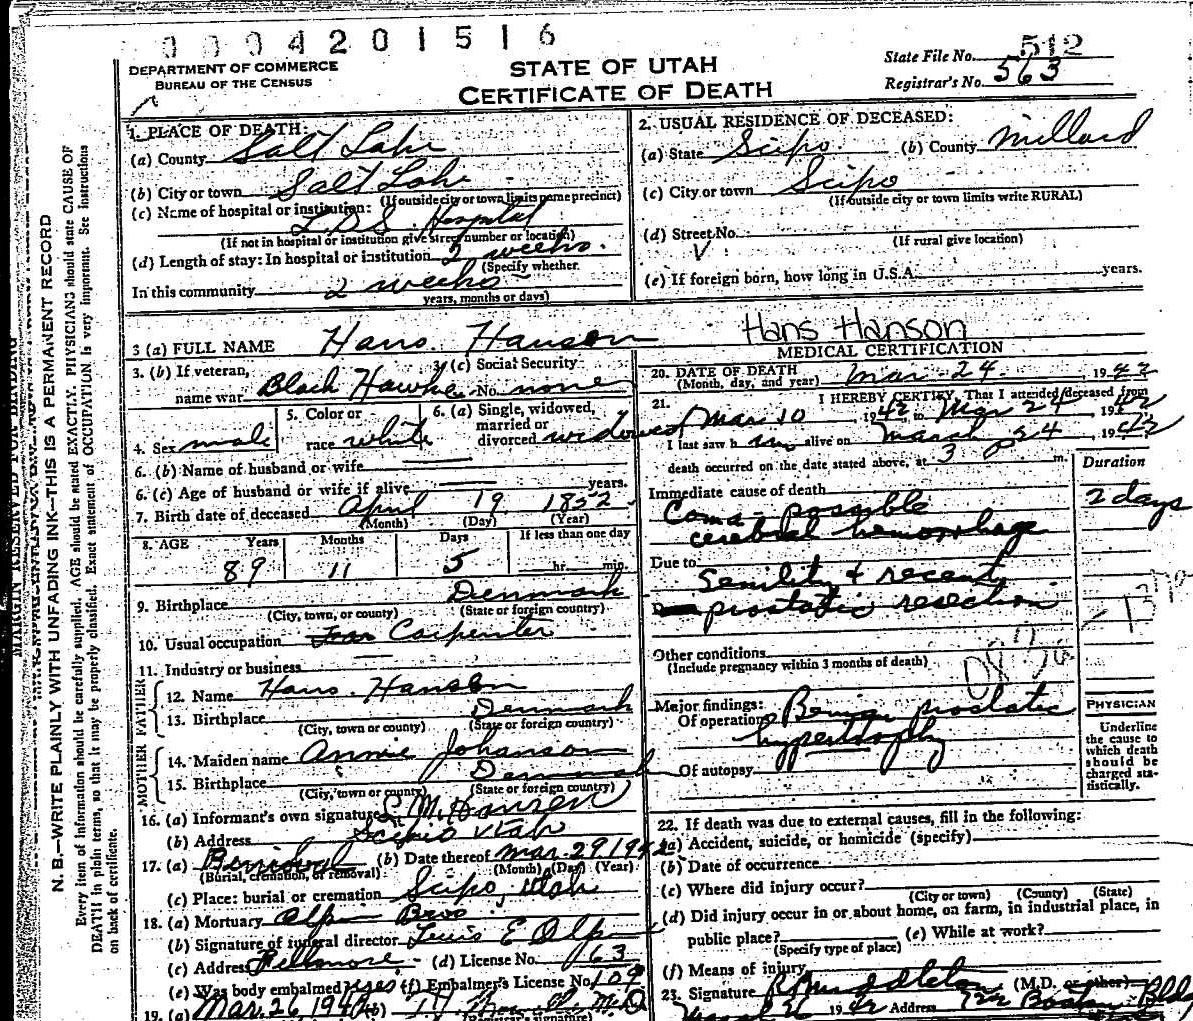 0004201516
DEPARTMENT OF COMMERCE
BUREAU OF THE CENSUS
STATE OF UTAH
CERTIFICATE OF DEATH
State File No. 512
Registrar's No. 563
1. PLACE OF DEATH:
(a) County Salt Lake
(b) City or town Salt Lake
(If outside city or town limits name precinct)
(c) Name of hospital or institution:
L.D.S. Hospital
(If not in hospital or institution give street number or location)
(d) Length of stay: In hospital or institution 2 weeks.
(Specify whether
In this community 2 weeks
years, months or days)
2. USUAL RESIDENCE OF DECEASED:
(a) State Scipo (b) County Millard
(c) City or town Scipo
(If outside city or town limits write RURAL)
(d) Street No.
(If rural give location)
(e) If foreign born, how long in U.S.A. years.
3 (a) FULL NAME Hans Hanson Hans Hanson
3. (b) If veteran,
name war Black Hawk
3 (c) Social Security
No. none
4. Sex male
5. Color or
race white
6. (a) Single, widowed,
married or
divorced widowed
6. (b) Name of husband or wife
6. (c) Age of husband or wife if alive years.
7. Birth date of deceased April 19 1852
(Month) (Day) (Year)
8. AGE Years Months Days If less than one day
89 11 5 hr. min.
9. Birthplace Denmark
(City, town, or county) (State or foreign country)
10. Usual occupation Carpenter
11. Industry or business
FATHER
12. Name Hans Hanson
13. Birthplace Denmark
(City, town or county) (State or foreign country)
MOTHER
14. Maiden name Annie Johanson
15. Birthplace Denmark
(City, town or county) (State or foreign country)
16. (a) Informant's own signature M. Hansen
(b) Address Scipio Utah
17. (a) (b) Date thereof Mar. 29 1942
(Burial, cremation, or removal) (Month) (Day) (Year)
(c) Place: burial or cremation Scipo, Utah
18. (a) Mortuary Bros
(b) Signature of funeral director E
(c) Address Fillmore (d) License No. 63
(e) Was body embalmed? yes (f) Embalmer's License No. 109
19. (a) Mar. 26 1942 (b) M.D.
(Registrar's signature)
MEDICAL CERTIFICATION
20. DATE OF DEATH
(Month, day, and year) Mar 24 1942
21. I HEREBY CERTIFY, That I attended deceased from
Mar 10 1942 to Mar 24 1942
I last saw him alive on March 24, 1942
death occurred on the date stated above, at 3 P m.
Duration
Immediate cause of death
Coma - possible
cerebral hemorrhage
2 days
Due to
Senility & recent
prostatic resection
Other conditions
(Include pregnancy within 3 months of death)
Major findings:
Of operation Benign prostatic
hypertrophy
Of autopsy
PHYSICIAN
Underline
the cause to
which death
should be
charged sta-
tistically.
22. If death was due to external causes, fill in the following:
(a) Accident, suicide, or homicide (specify)
(b) Date of occurrence
(c) Where did injury occur?
(City or town) (County) (State)
(d) Did injury occur in or about home, on farm, in industrial place, in
public place? (e) While at work?
(Specify type of place)
(f) Means of injury
23. Signature Middleton (M.D. or other)
1942 Address Boston Bldg
MARGIN RESERVED FOR BINDING
N. B.—WRITE PLAINLY WITH UNFADING INK—THIS IS A PERMANENT RECORD
Every item of information should be carefully supplied. AGE should be stated EXACTLY. PHYSICIAN should state CAUSE OF
DEATH in plain terms, so that it may be properly classified. Exact statement of OCCUPATION is very important. See instructions
on back of certificate.